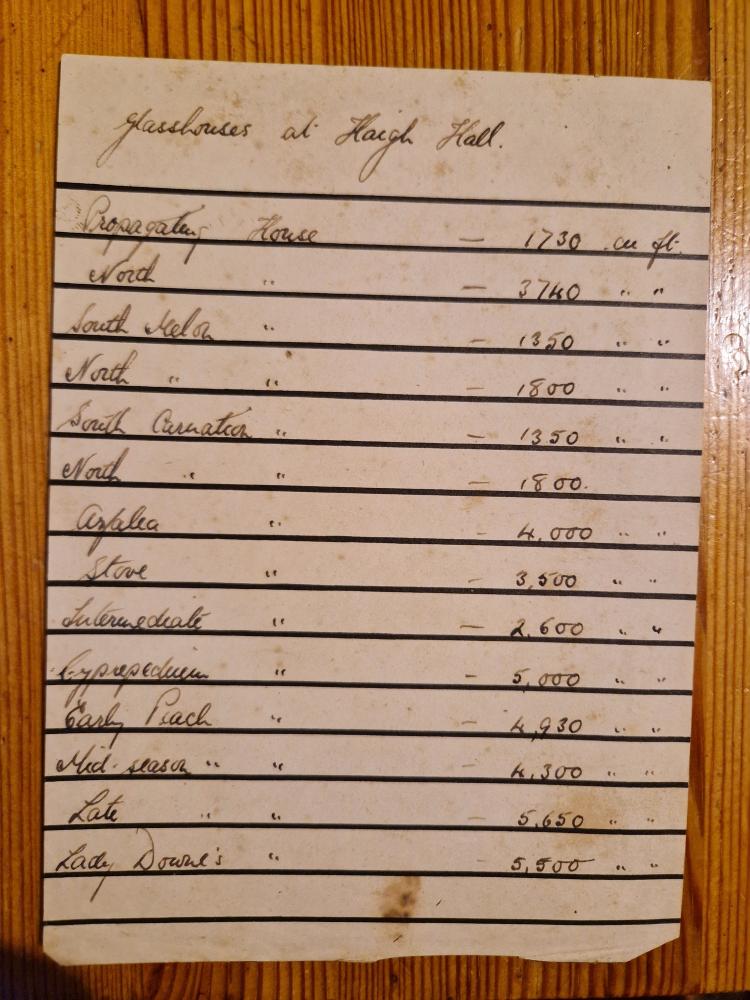 Glasshouses at Haigh Hall.
Propagating House — 1730 cu ft.
North " — 3740 " "
South Melon " — 1350 " "
North " " — 1800 " "
South Carnation " — 1350 " "
North " " — 1800.
Azalea " — 4,000 " "
Stove " — 3,500 " "
Intermediate " — 2,600 " "
Cyprepedium " — 5,000 " "
Early Peach " — 4,930 " "
Mid-season " " — 4,300 " "
Late " " — 5,650 " "
Lady Downe's " — 5,500 " "